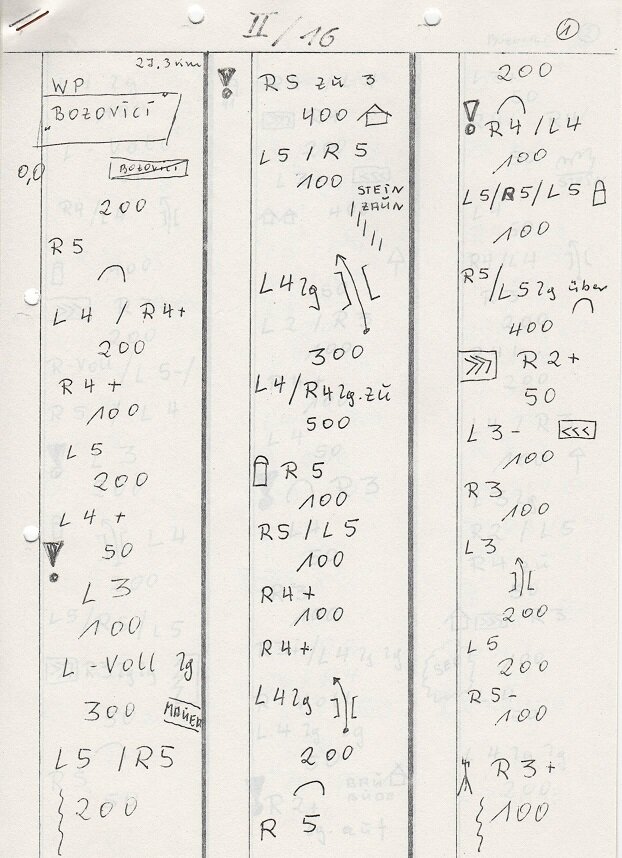 II/16
1
27.3 km
WP
"BOZOVICI"
0,0
BOZOVICI
200
R5
L4 / R4+
200
R4+
100
L5
200
L4+
!
50
L3
100
L-VOLL lg
300 MAUER
L5 / R5
200
! R5 zu 3
400
L5 / R5
100
STEIN
ZAUN
L4 lg ] [
300
L4/R4 lg. zu
500
R5
100
R5 / L5
100
R4+
100
R4+
L4 lg ] [
200
R 5
200
!
R4 / L4
100
L5/R5/L5
100
R5/
L5 lg über
400
>>> R2+
50
L3- <<<
100
R3
100
L3
] [
200
L5
200
R5-
100
R3+
100